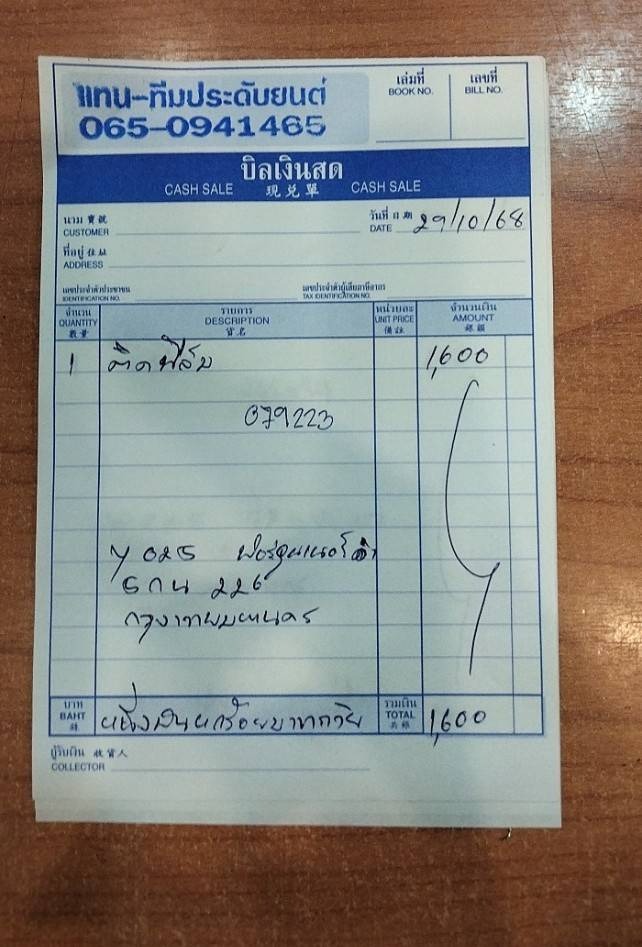 แทน-ทีมประดับยนต์
065-0941465
เล่มที่
BOOK NO.
เลขที่
BILL NO.
บิลเงินสด
CASH SALE 現兑單 CASH SALE
นาม 寶號
CUSTOMER
วันที่ 日期
DATE 29/10/68
ที่อยู่ 住址
ADDRESS
เลขประจำตัวประชาชน
IDENTIFICATION NO.
เลขประจำตัวผู้เสียภาษีอากร
TAX IDENTIFICATION NO.
จำนวน
QUANTITY
數量
รายการ
DESCRIPTION
貨名
หน่วยละ
UNIT PRICE
備註
จำนวนเงิน
AMOUNT
銀額
1 ติดฟิล์ม 1,600
079223
y 025 ฟอร์จูนเนอร์ดำ
5กน 226
กรุงเทพมหานคร
บาท
BAHT
หนึ่งพันหกร้อยบาทถ้วน
รวมเงิน
TOTAL
共銀
1,600
ผู้รับเงิน 收貨人
COLLECTOR